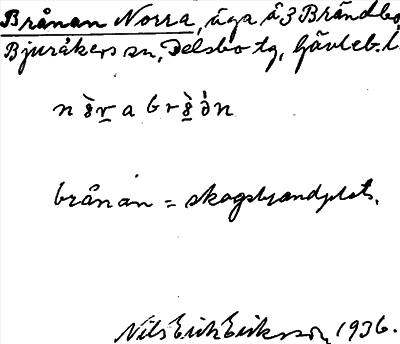 Brånan Norra, äga å 3 Brändbo
Bjuråkers sn, Delsbo tg, Gävleb. l.
brånan = skogsbrandplats.
Nils Erik Eriksson 1936.